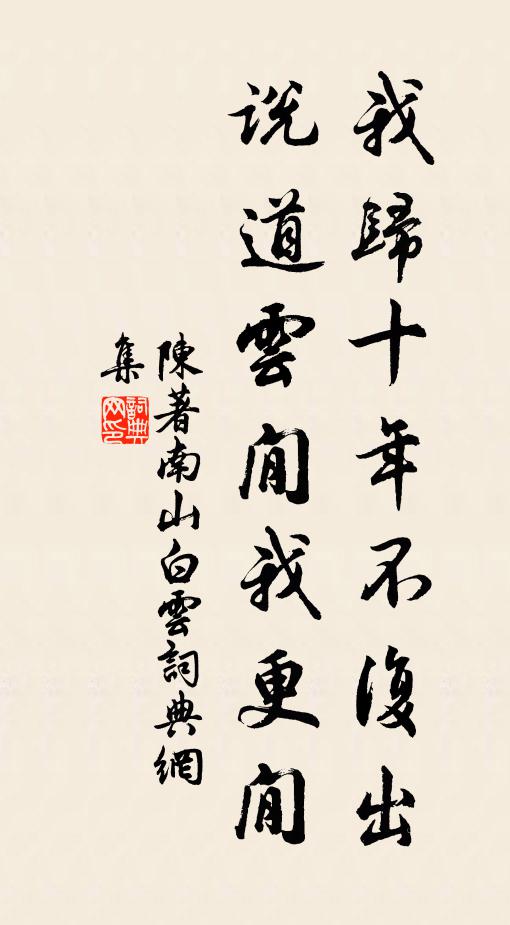 我歸十年不復出
說道雲閒我更閒
陳著南山白雲詞典網
集
詞典網印